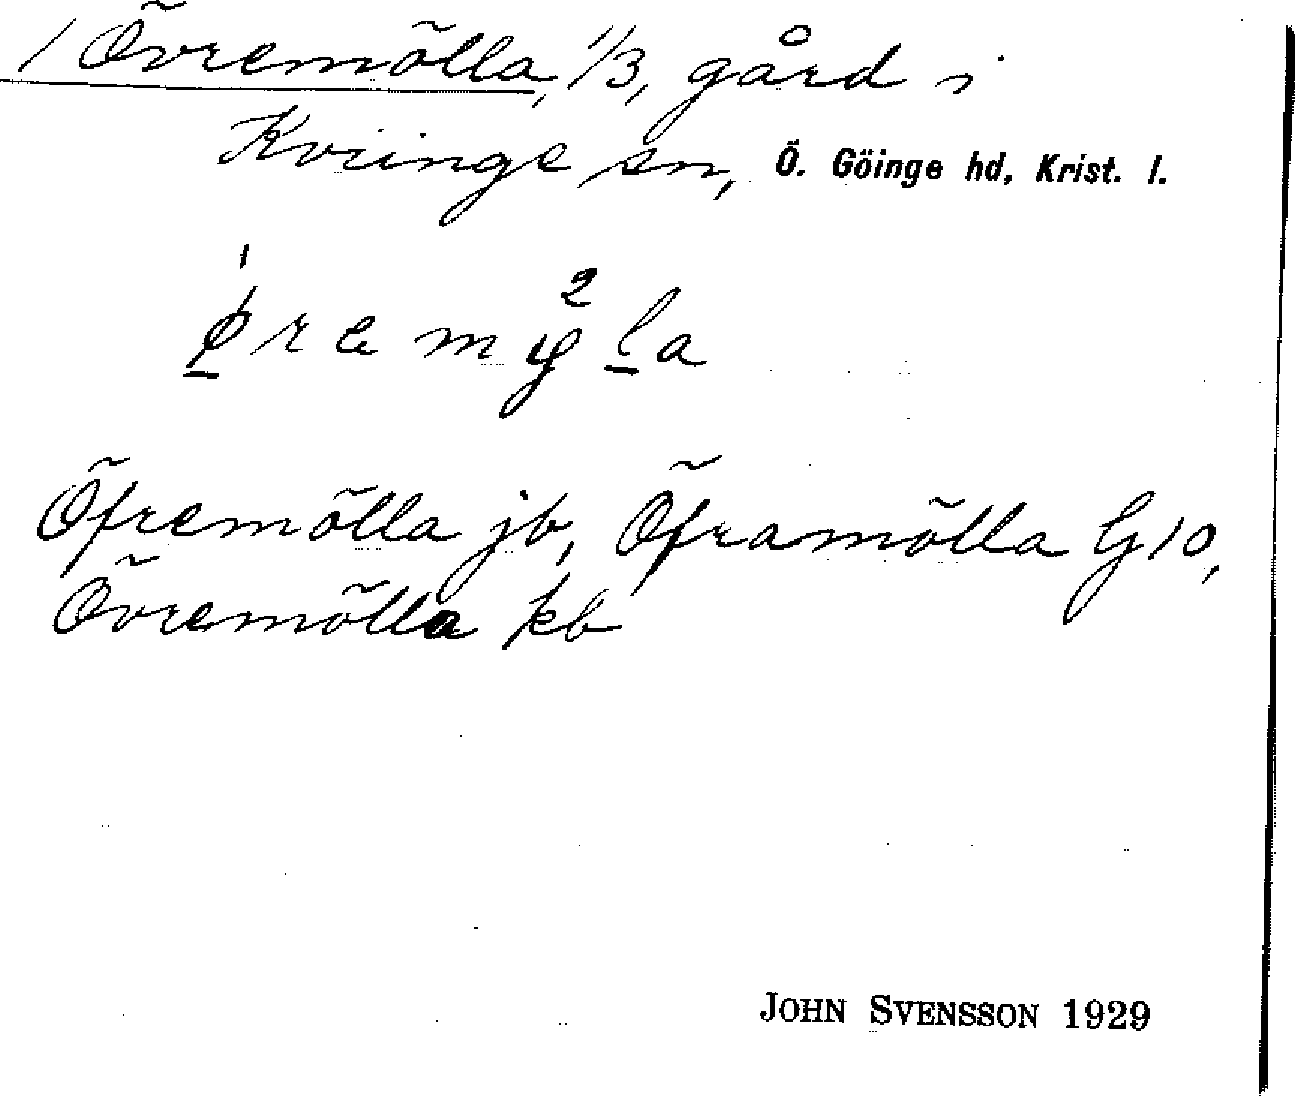 / Övremölla, 1/3, gård i
Kviinge sn, Ö. Göinge hd, Krist. l.
Öfremölla jb, Öframölla G10,
Övremölla kb
JOHN SVENSSON 1929